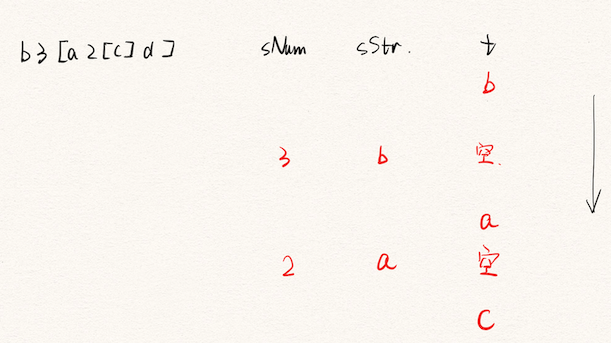 b3[a2[c]d] sNum sStr. t
b
3 b 空.
a
2 a 空
c